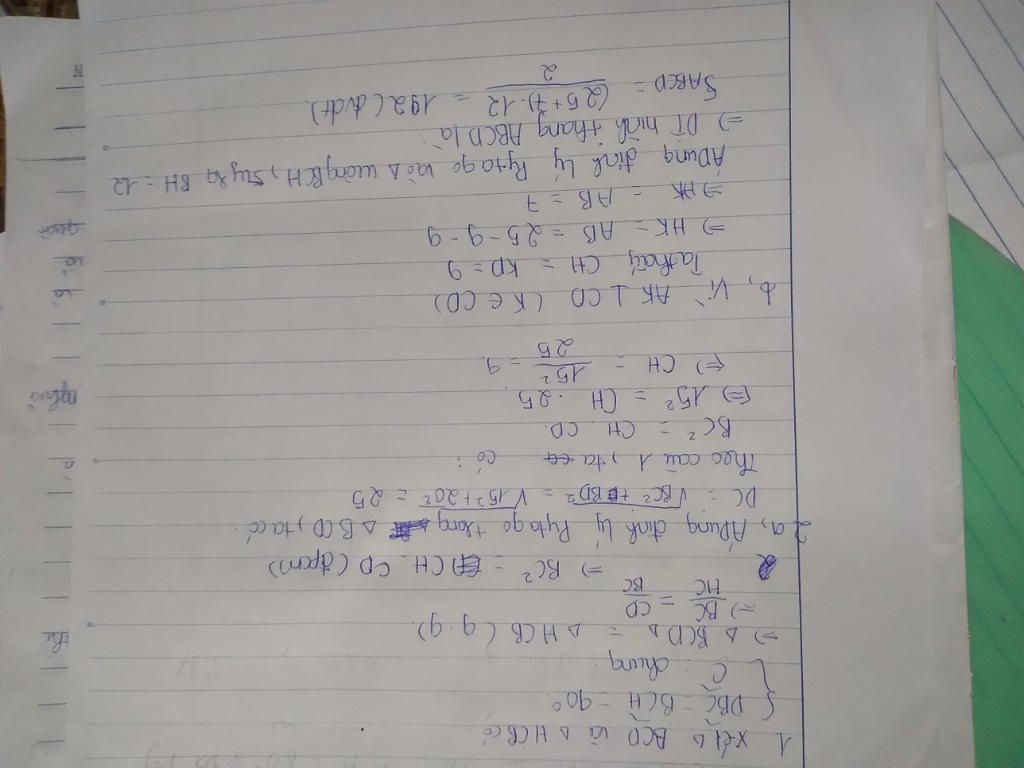 1 Xét Δ BCD và Δ HCB có
{ DBC = BCH = 90°
C : chung
=> Δ BCD = Δ HCB (g.g)
=> BC/HC = CD/BC
=> BC² = CH. CD (đpcm)
2 a, ÁDụng định lý Pytago trong Δ BCD, ta có:
DC = √BC² + BD² = √15² + 20² = 25
Theo câu 1, ta có :
BC² = CH. CD.
<=> 15² = CH . 25
<=> CH = 15²/25 = 9.
b, Vì AK ⊥ CD (K ∈ CD)
Ta thấy CH = KD = 9
=> HK = AB = 25 - 9 - 9
=> HK = AB = 7
ÁDụng định lý Pytago vào Δ vuông BCH, suy ra BH = 12
=> DT hình thang ABCD là:
SABCD = (25+7).12/2 = 192 (đvdt).